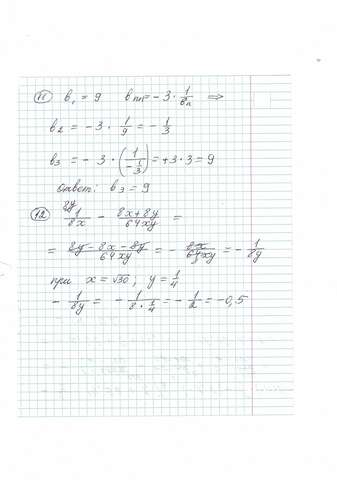 11 b₁ = 9 bₙ₊₁ = -3 · 1/bₙ ⇒
b₂ = -3 · 1/9 = -1/3
b₃ = -3 · (1/(-1/3)) = +3·3 = 9
ответ: b₃ = 9
12 8y
1/8x - (8x+8y)/64xy =
= (8y - 8x - 8y)/64xy = - 8x/64xy = - 1/8y
при x = √30, y = 1/4
- 1/8y = - 1/(8 · 1/4) = - 1/2 = -0,5